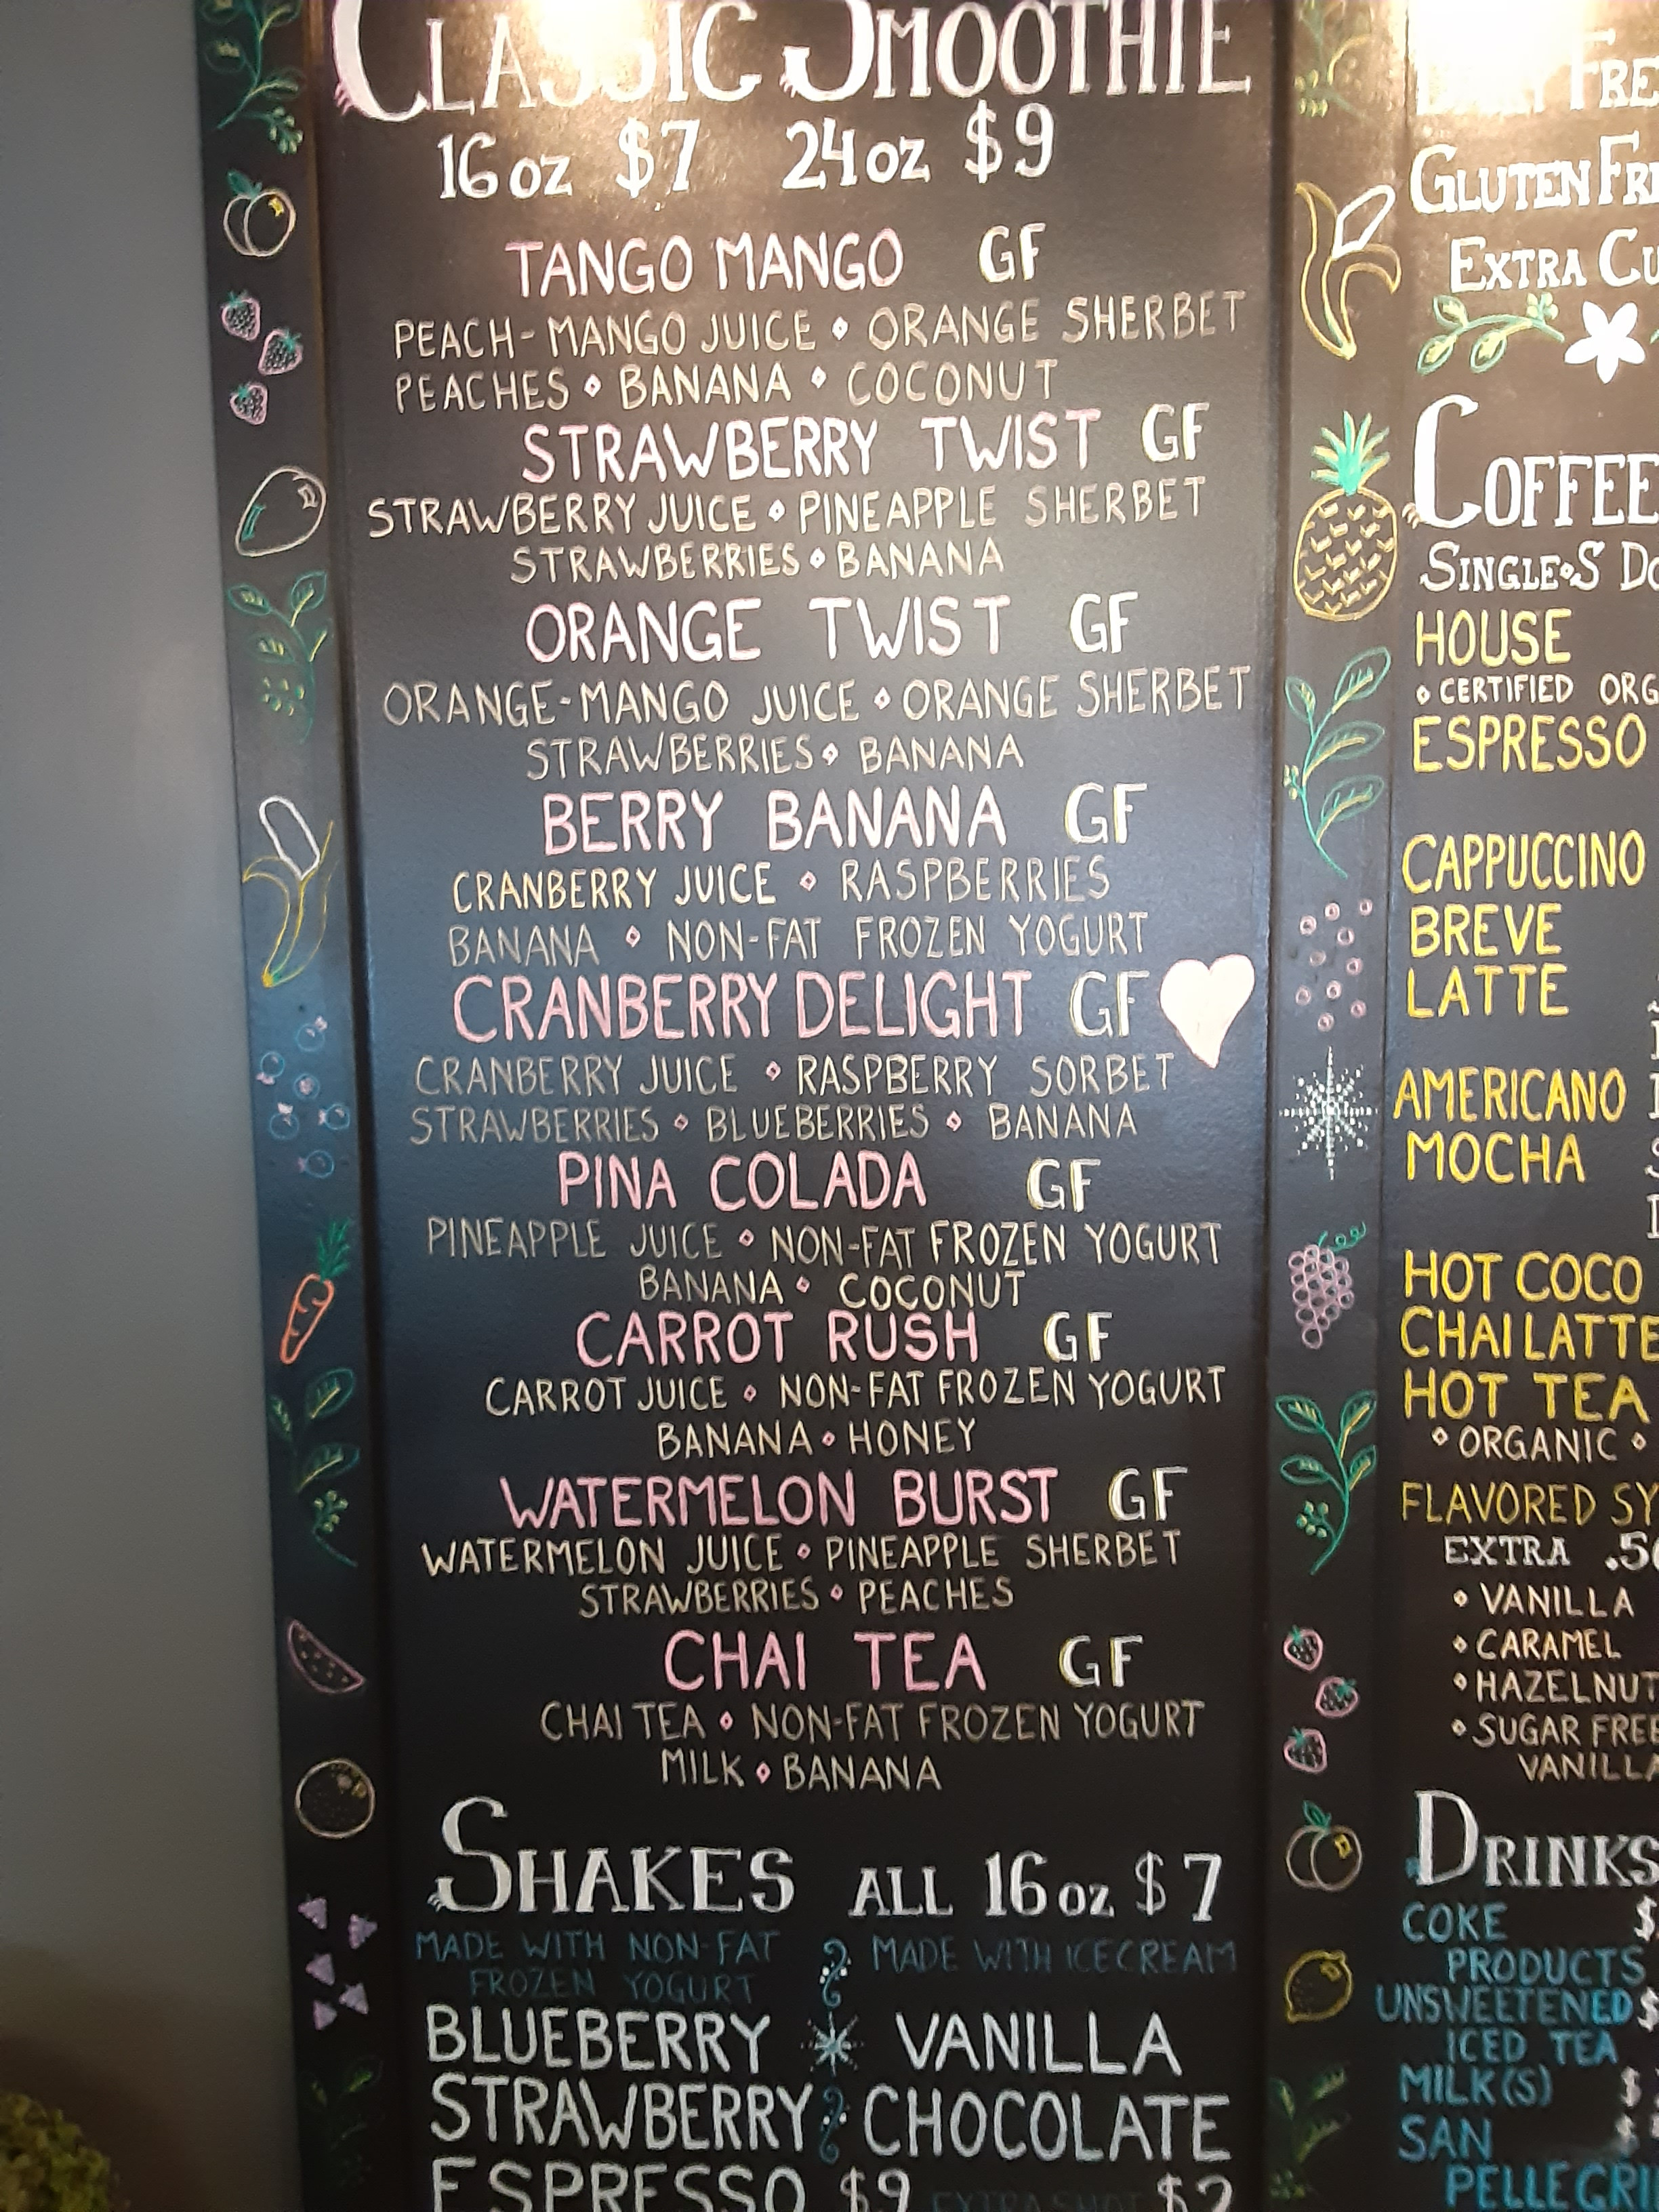 CLASSIC SMOOTHIE
16 oz $7 24 oz $9
TANGO MANGO GF
PEACH-MANGO JUICE ⋄ ORANGE SHERBET
PEACHES ⋄ BANANA ⋄ COCONUT
STRAWBERRY TWIST GF
STRAWBERRY JUICE ⋄ PINEAPPLE SHERBET
STRAWBERRIES ⋄ BANANA
ORANGE TWIST GF
ORANGE-MANGO JUICE ⋄ ORANGE SHERBET
STRAWBERRIES ⋄ BANANA
BERRY BANANA GF
CRANBERRY JUICE ⋄ RASPBERRIES
BANANA ⋄ NON-FAT FROZEN YOGURT
CRANBERRY DELIGHT GF
CRANBERRY JUICE ⋄ RASPBERRY SORBET
STRAWBERRIES ⋄ BLUEBERRIES ⋄ BANANA
PINA COLADA GF
PINEAPPLE JUICE ⋄ NON-FAT FROZEN YOGURT
BANANA ⋄ COCONUT
CARROT RUSH GF
CARROT JUICE ⋄ NON-FAT FROZEN YOGURT
BANANA ⋄ HONEY
WATERMELON BURST GF
WATERMELON JUICE ⋄ PINEAPPLE SHERBET
STRAWBERRIES ⋄ PEACHES
CHAI TEA GF
CHAI TEA ⋄ NON-FAT FROZEN YOGURT
MILK ⋄ BANANA
SHAKES ALL 16 oz $7
MADE WITH NON-FAT
FROZEN YOGURT
MADE WITH ICE CREAM
BLUEBERRY VANILLA
STRAWBERRY CHOCOLATE
ESPRESSO $9 EXTRA SHOT $2
FRE
GLUTEN FRE
EXTRA CU
COFFEE
SINGLE⋄S DO
HOUSE
⋄ CERTIFIED ORG
ESPRESSO
CAPPUCCINO
BREVE
LATTE
AMERICANO
MOCHA
HOT COCO
CHAI LATTE
HOT TEA
⋄ ORGANIC ⋄
FLAVORED SY
EXTRA .50
⋄ VANILLA
⋄ CARAMEL
⋄ HAZELNUT
⋄ SUGAR FREE
VANILLA
DRINKS
COKE $
PRODUCTS
UNSWEETENED $
ICED TEA
MILK(S) $
SAN $
PELLEGRI